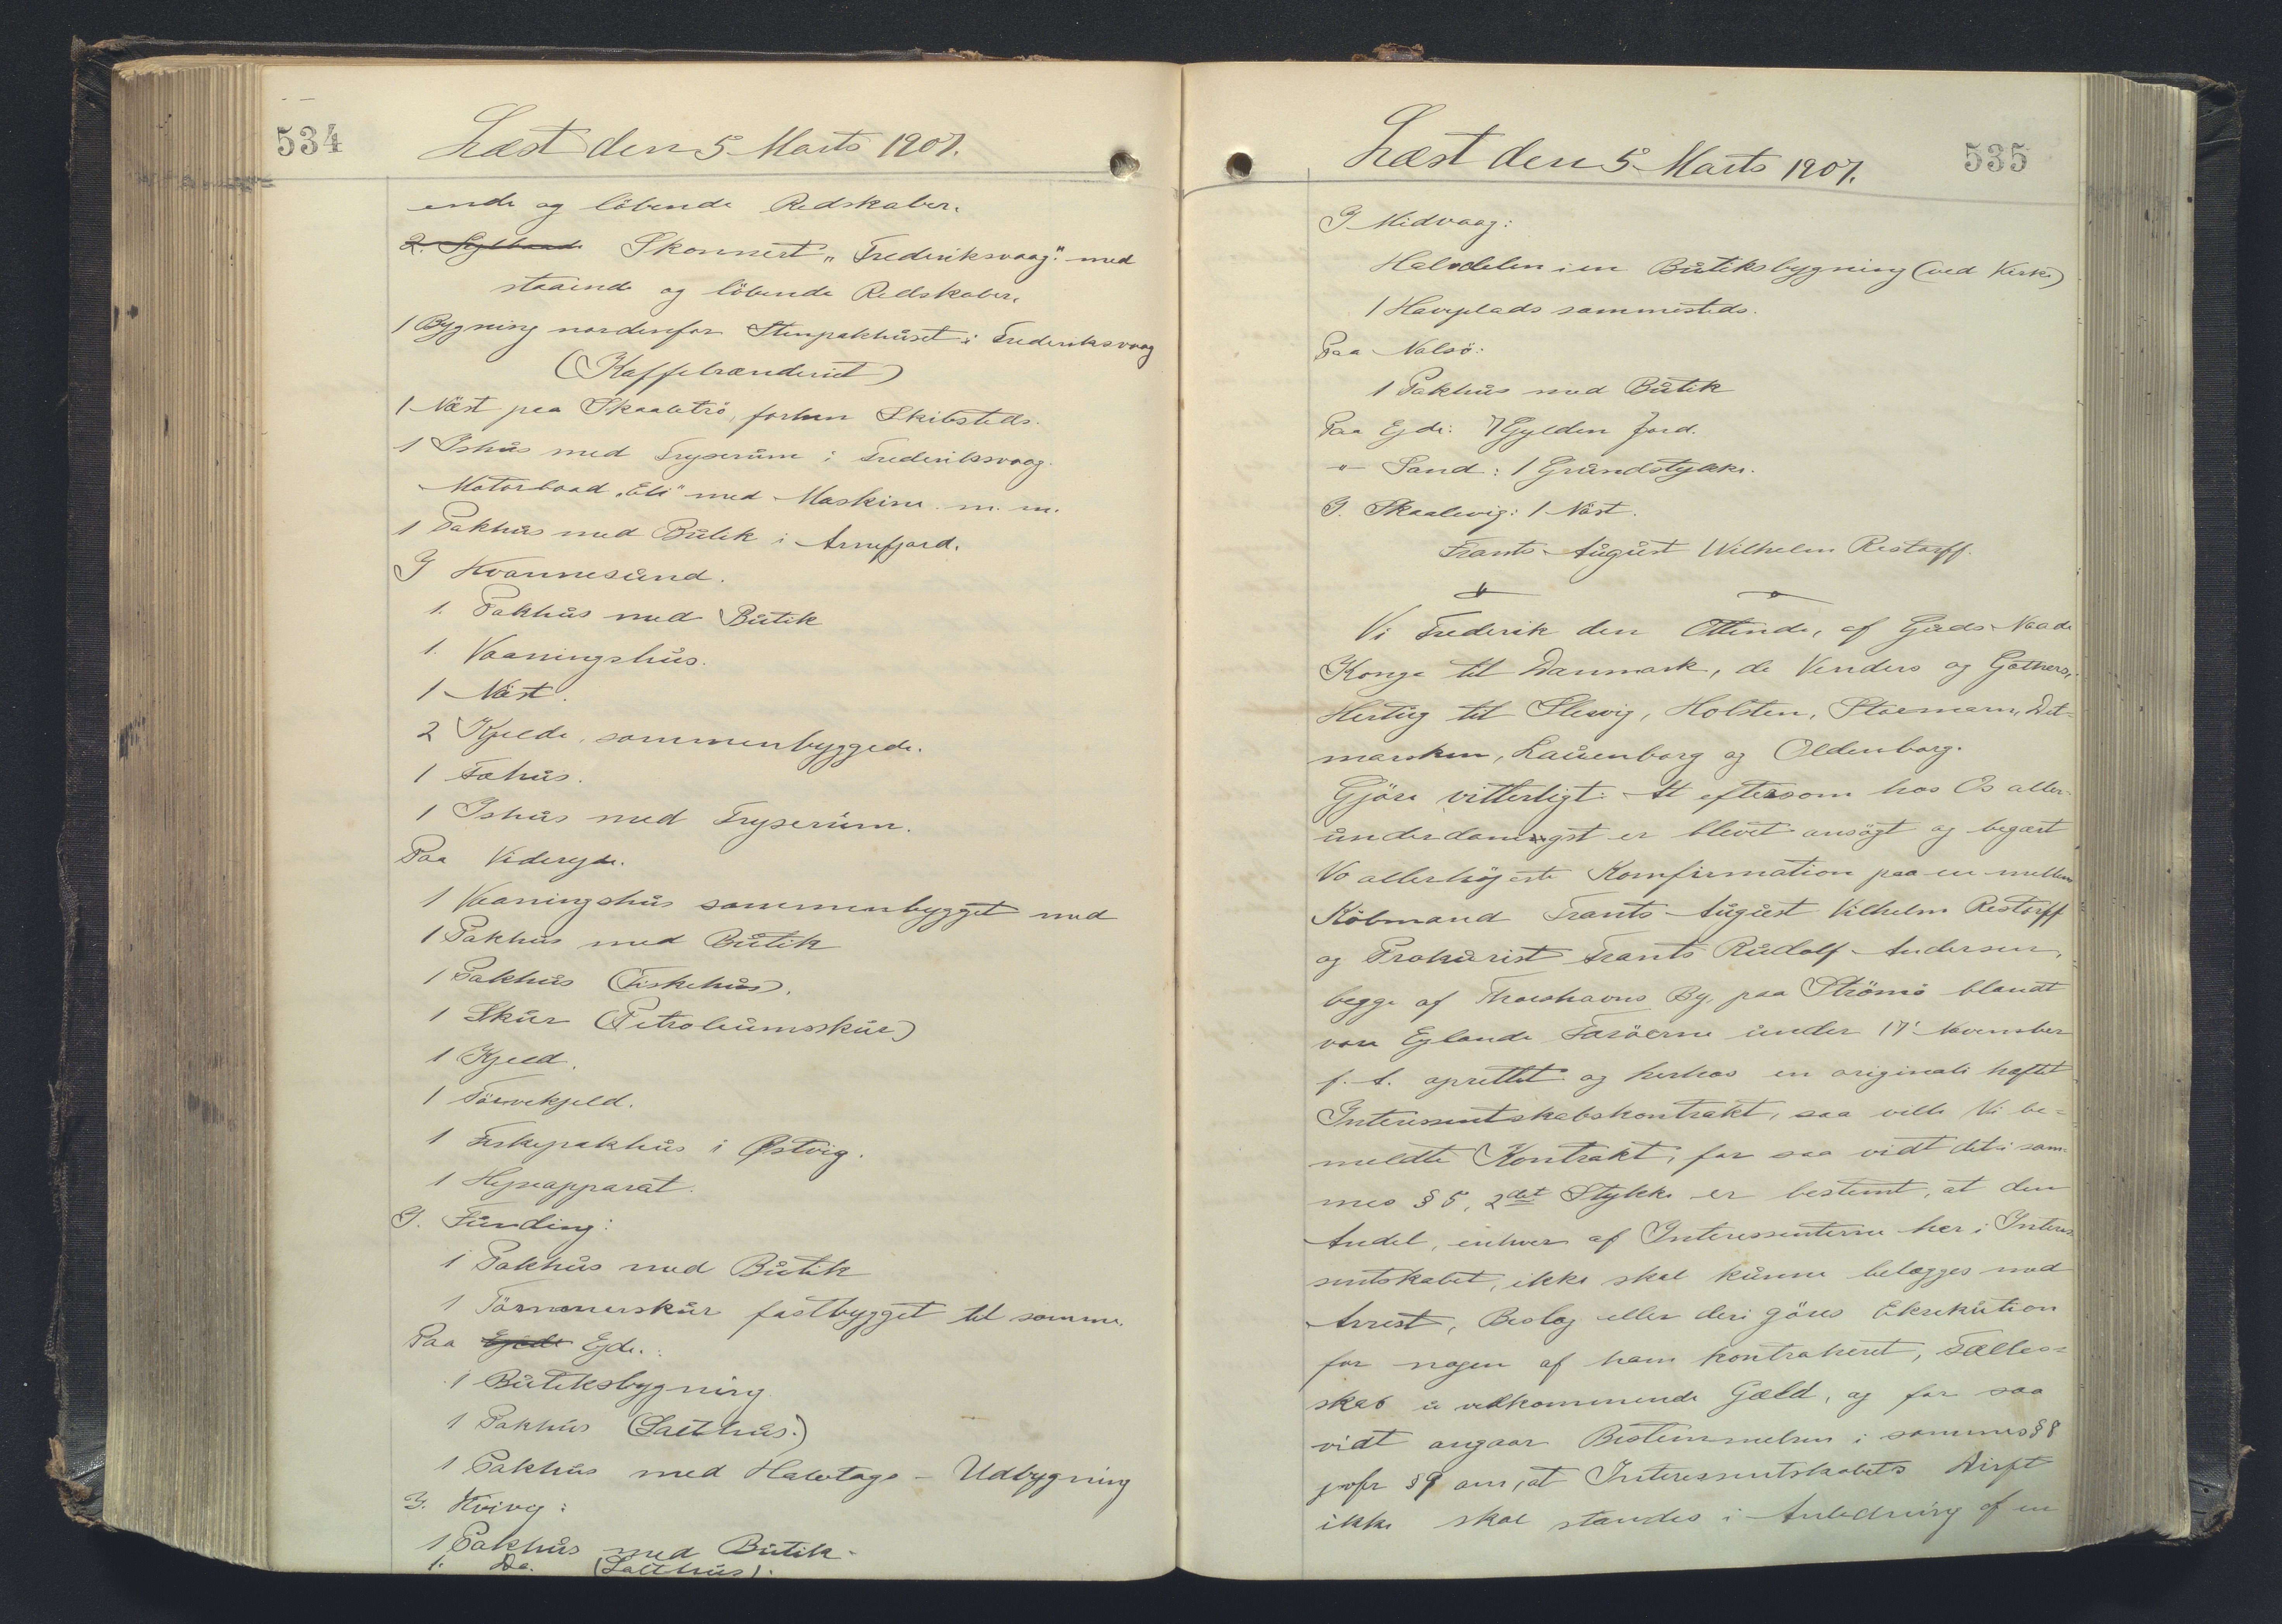 534
Læst den 5 Marts 1907.
ende og löbende Redskaber.
2. Sejlbaad Skonnert „Frederiksvaag." med
staaende og löbende Redskaber.
1 Bygning nordenfor Stenpakhuset i Frederiksvaag
(Kaffebrænderiet)
1 Nöst paa Skaaletrö, forhen Skibsteds.
1 Ishus med Fryserum i Frederiksvaag.
Motorbaad „Eli" med Maskine m. m.
1 Pakhus med Butik i Arnefjord.
I Kvannesund.
1. Pakhus med Butik
1. Vaaningshus.
1 Nöst.
2 Kjelde, sammenbyggede.
1 Fæhus.
1 Ishus med Fryserum.
Paa Videreide.
1 Vaaningshus sammenbygget med
1 Pakhus med Butik
1 Pakhus (Fiskehus).
1 Skur (Petroleumsskur)
1 Kjeld.
1 Törvekjeld.
1 Fiskepakhus i Østvig.
1 Hejseapparat.
I. Funding:
1 Pakhus med Butik
1 Tömmerskur fastbygget til samme.
Paa Ejede Ejde.:
1 Butiksbygning
1 Pakhus (Salthus.)
1 Pakhus med Halvtags-Udbygning
I. Kvivig:
1 Pakhus med Butik.
1. Do. (Salthus).
Læst den 5 Marts 1907.
535
I Midvaag:
Halvdelen i en Butiksbygning (ved Kirke)
1 Haveplads sammesteds.
Paa Nolsö:
1 Pakhus med Butik
Paa Ejde: 7 Gylden Jord.
-"- Sand: 1 Grundstykke.
I. Skaalevig: 1 Nöst.
Frants August Wilhelm Restorff.
Vi Frederik den Ottende, af Guds Naade
Konge til Danmark, de Venders og Gothers,
Hertug til Slesvig, Holsten, Stormarn, Dit-
marsken, Lauenborg og Oldenborg.
Gjöre vitterligt: At eftersom hos Os aller-
underdanigst er blevet ansögt og begært
Vo allerhöjeste Konfirmation paa en mellem
Köbmand Frants August Vilhelm Restorff
og Prokurist Frants Rudolf Andersen,
begge af Thorshavns By, paa Strömö blandt
vore Eylande Færöerne under 17' November
f. A. oprettet og herhos en originali hæftet
Interessentskabskontrakt, saa ville Vi be-
meldte Kontrakt, for saa vidt det i sam-
mes § 5, 2det Stykke er bestemt, at den
Andel, enhver af Interessenterne har i Interes
sentskabet, ikke skal kunne belægges med
Arrest, Beslag eller deri göres Eksekution
for nogen af ham kontraheret, Fælles-
skab u vedkommende Gæld, og for saa
vidt angaar Bestemmelsen i sammes § 8
jvnfr § 9 om, at Interessentskabets Drift
ikke skal standses i Anledning af en